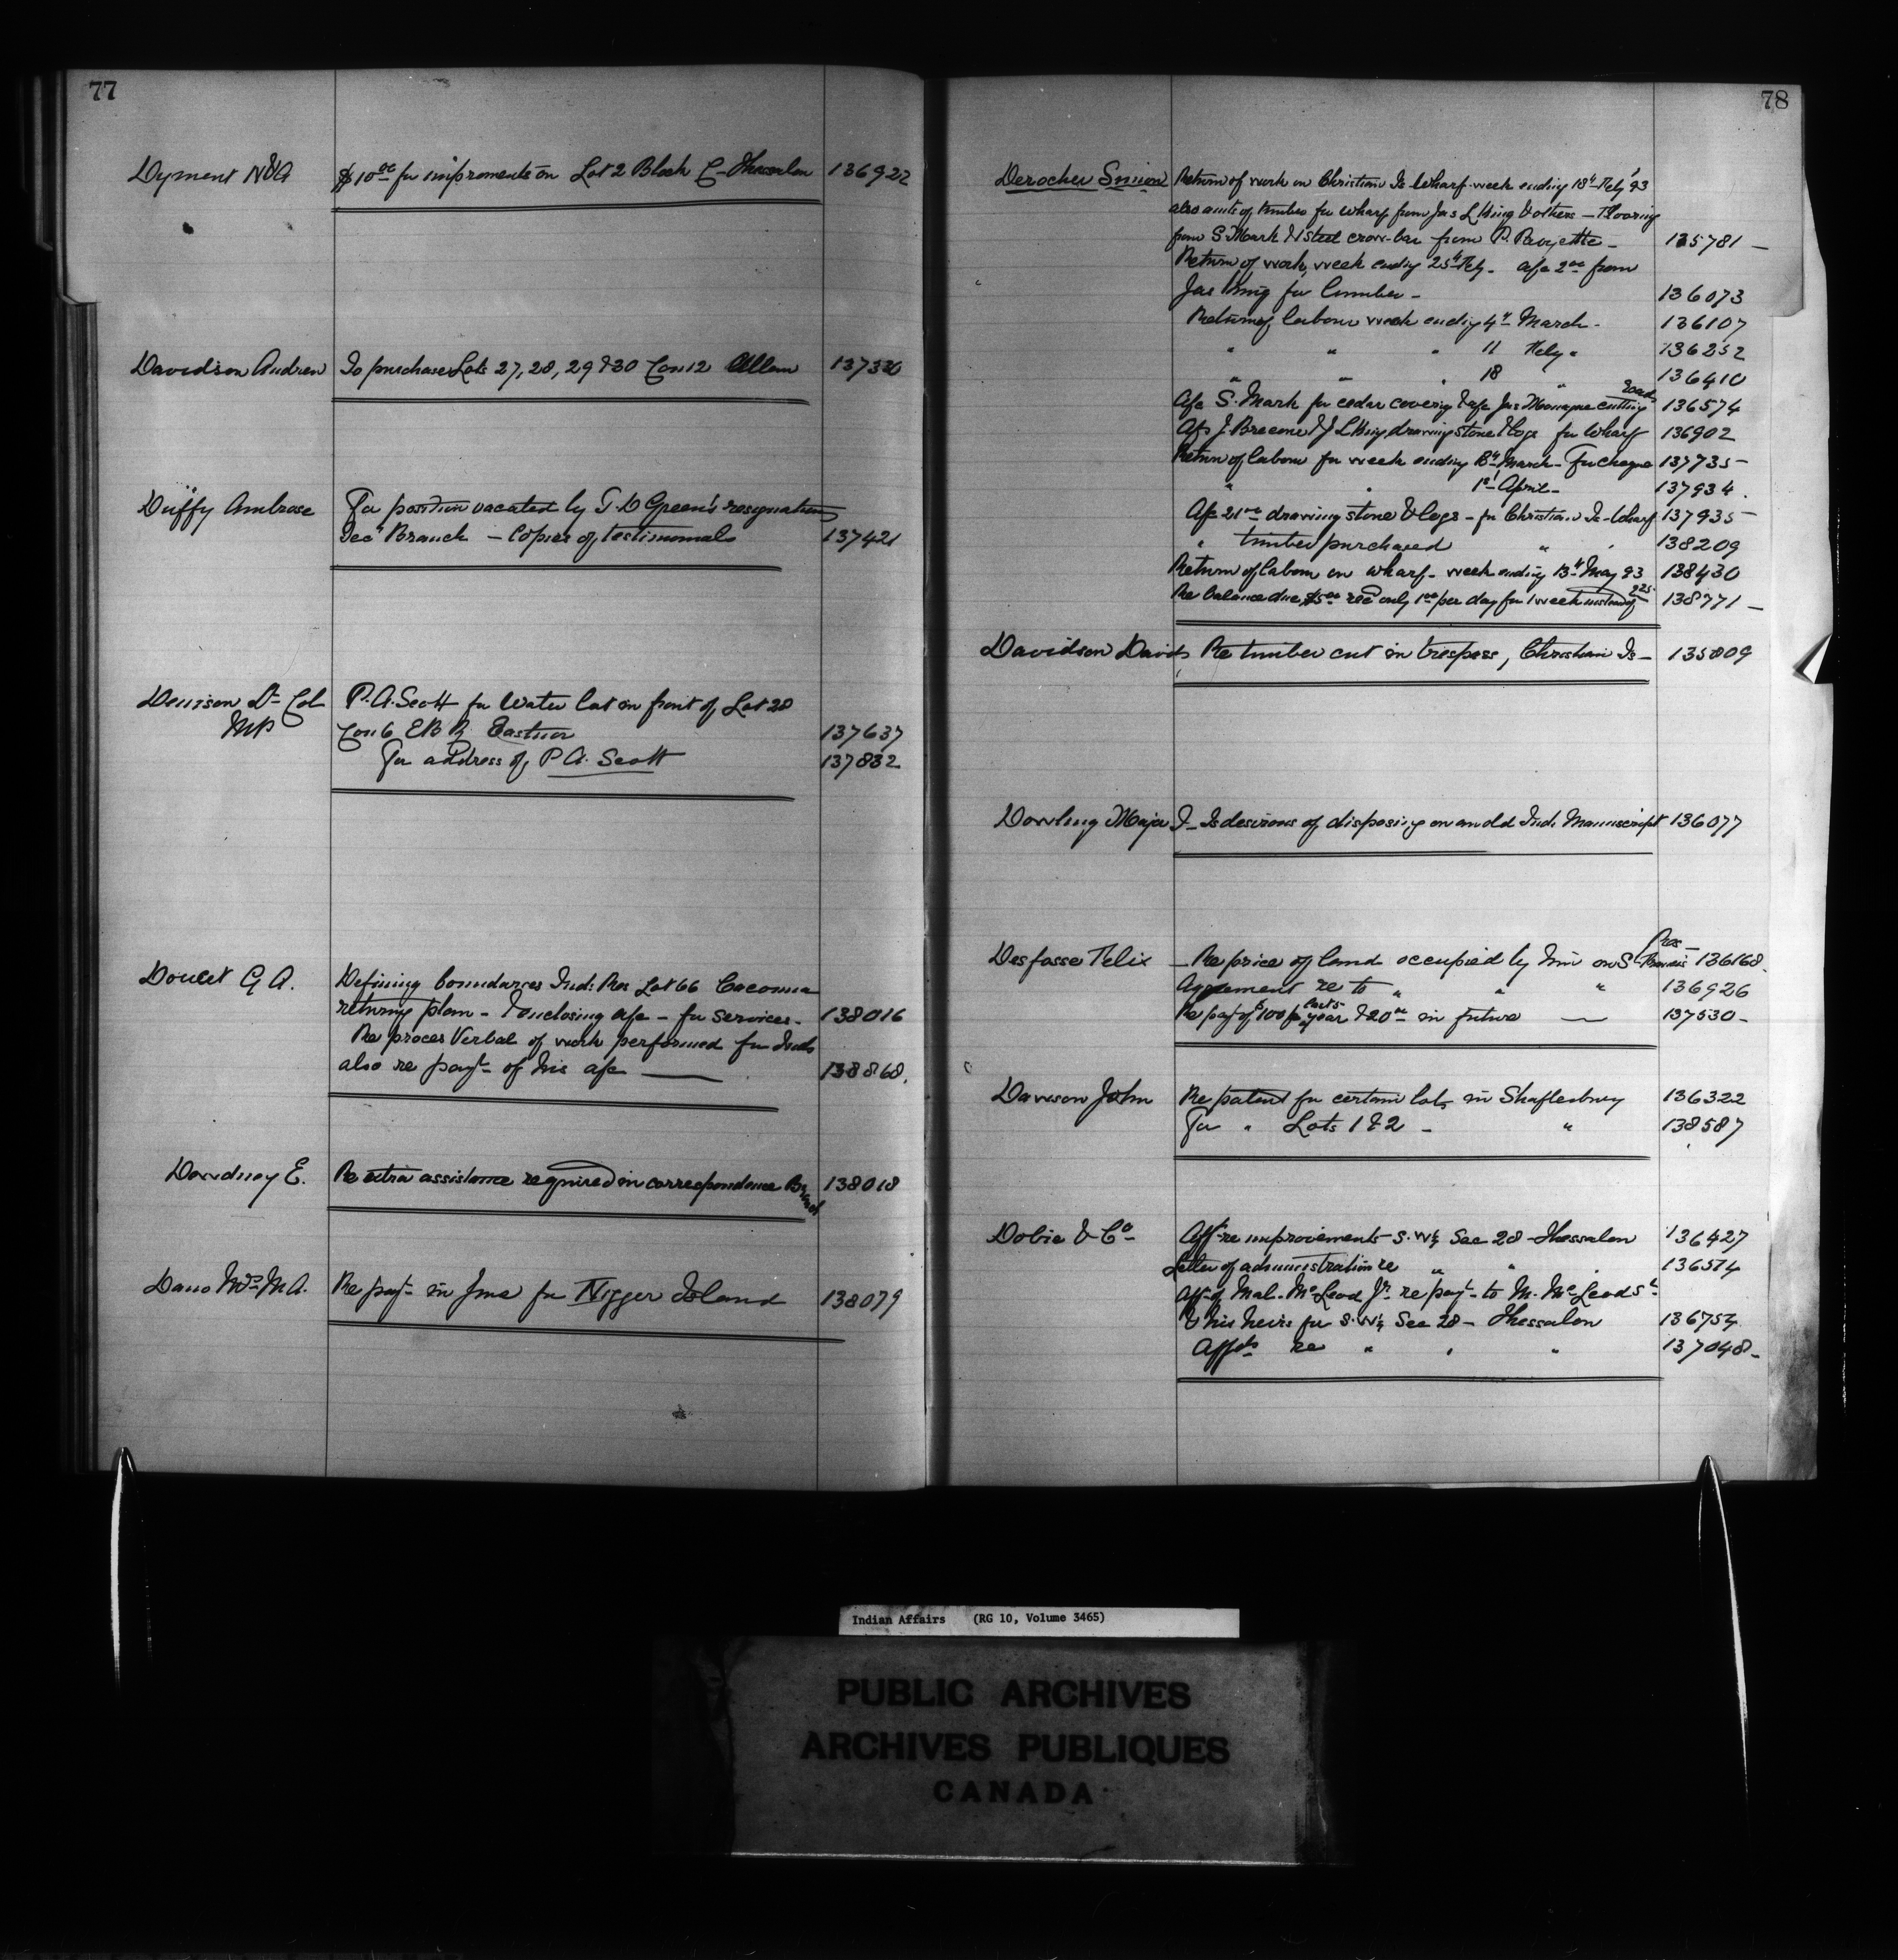 77
Dyment N & A $10 00 for improments on Lot 2 Block C - Thessalon 136922
Davidson Andrew To purchase Lots 27, 28, 29 & 30 Con 12 Allan 137330
Duffy Ambrose For position vacated by T. D Green's resignation
Tecl Branch - Copies of testimonials 137421
Denison Lt Col P. A. Scott for Water lot in front of Lot 28
MP Con 6 E B R Eastnor 137637
For address of P A. Scott 137832
Doucet G A. Defining boundaries Ind: Res Lot 66 Cacouna
returng plan - & enclosing a/c - for services - 138016
Re proces Verbal of work performed for Inds
also re payt of his a/c 138868.
Dewdney E. Re extra assistance required in correspondence Branch 138018
Davo Mrs M A. Re payt in for Nigger Island 138079
78
Derocher Simion Return of work on Christian Is Wharf week ending 18th Feby '93
also amts of timber for wharf from Jas L King & others - Flooring
from S. Mark & 1 steel crow-bar from P. 135781 -
Return of work, week endg 25th Feby - a/c 2 00 from
Jas King for lumber - 136073
Return of labour week endig 4th March - 136107
" " " 11 Feby " 136252
" " " 18 " 136410
A/c S. Mark for cedar covering & a/c Jas Monague cutting roads 136574
A/cs J. & J L King drawing stone & logs for Wharf 136902
Return of labour for week ending 18th March - For cheque 137735 -
" " 1st April - 137934.
A/c 21 00 drawing stone & logs - for Christian Is - Wharf 137935 -
" timber purchased " " 138209
Return of labour on wharf - week ending 13th May 93 138430
Re balance due, $5 00 recd only 1 00 per day for 1 week instead of 2 25 138771 -
Davidson David Re timber cut in trespass, Christian Is - 135809
Dowling Major J - Is desirous of disposing on an old Ind. Manuscript 136077
Desfosse Felix - Re price of land occupied by him on S Francis Res - 136168.
Agreement re to " " " 136926
Re payt of 100 for year & 20 00 in future 137530 -
Dawson John Re patent for certain lots in Shaftesbury 136322
For " Lots 1 & 2 - " 138587
Dobie & Co Afft re improvements - S. W¼ Sec 28 - Thessalon 136427
Letter of administration re " " " 136514
Afft of Mal. McLeod Jr re payt to M. McLeod Sr
& his heirs for S. W¼ Sec 28 - Thessalon 136754
Affts re " " " 137048 -
Indian Affairs (RG 10, Volume 3465)
PUBLIC ARCHIVES
ARCHIVES PUBLIQUES
CANADA